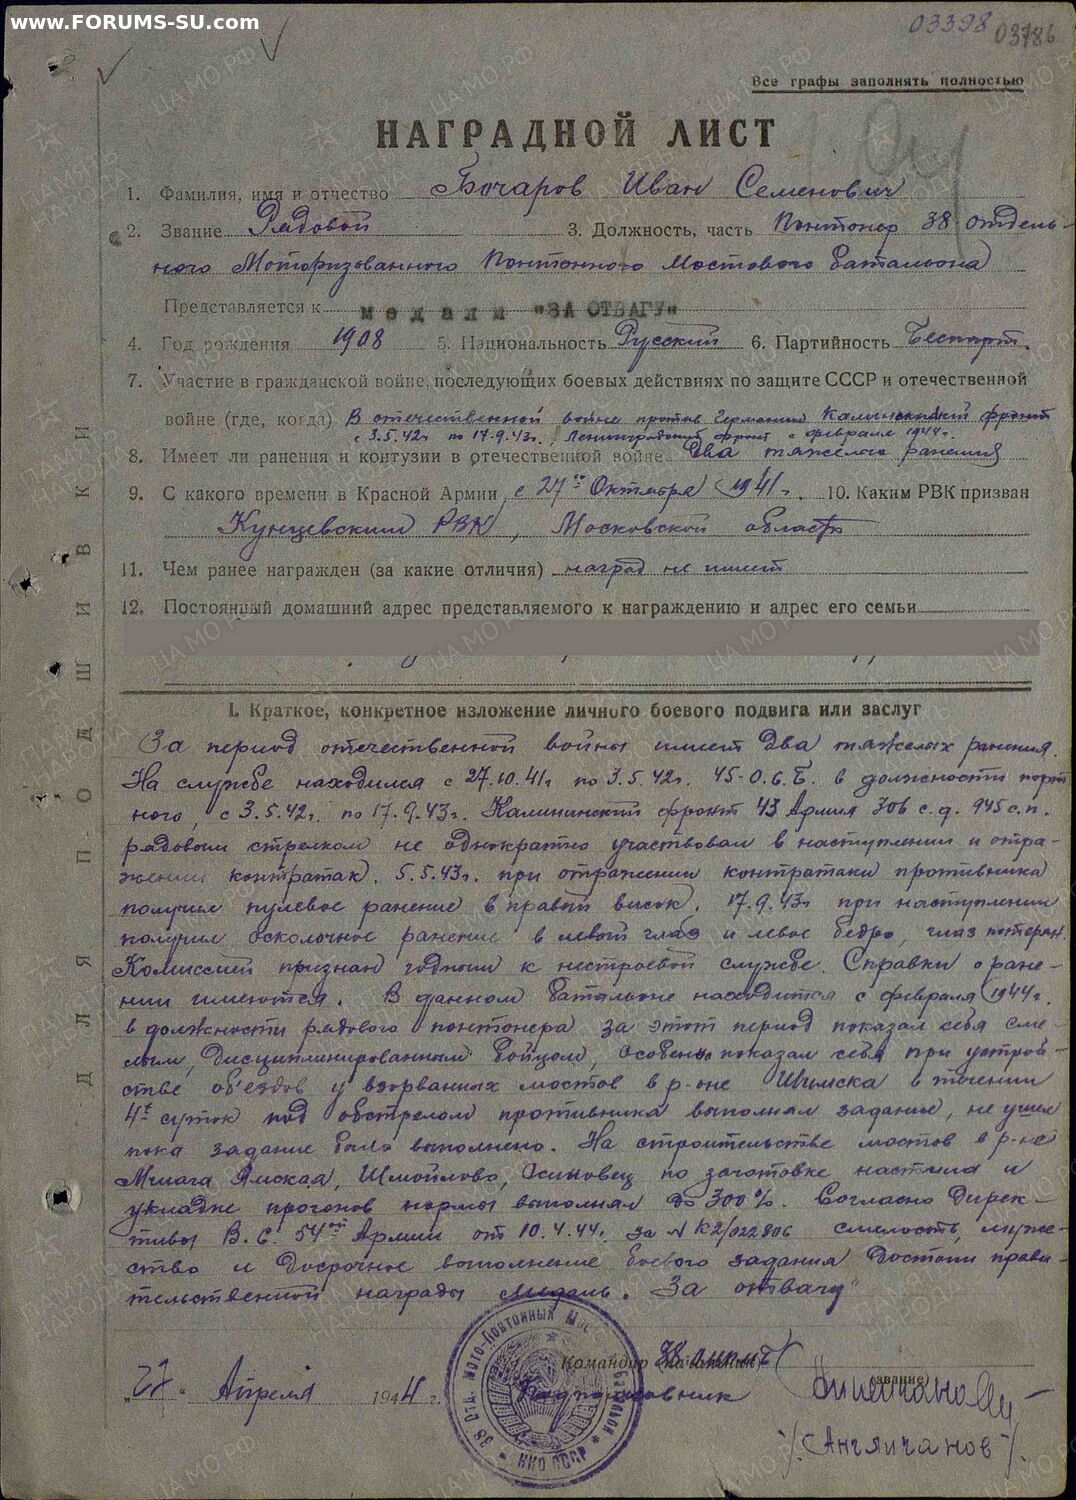 www.FORUMS-SU.com
03398 03786
Все графы заполнять полностью
НАГРАДНОЙ ЛИСТ
1. Фамилия, имя и отчество Бочаров Иван Семенович
2. Звание Рядовой 3. Должность, часть Понтонер 38 отдель-
ного Моторизованного Понтонного Мостового батальона
Представляется к медали "ЗА ОТВАГУ"
4. Год рождения 1908 5. Национальность Русский 6. Партийность Беспарт.
7. Участие в гражданской войне, последующих боевых действиях по защите СССР и отечественной
войне (где, когда) В отечественной войне против Германии Калининский фронт
с 3.5.42г по 17.9.43г., Ленинградский фронт с февраля 1944г.
8. Имеет ли ранения и контузии в отечественной войне Два тяжелых ранения
9. С какого времени в Красной Армии с 27го Октября 1941г. 10. Каким РВК призван
Кунцевским РВК, Московской области
11. Чем ранее награжден (за какие отличия) наград не имеет
12. Постоянный домашний адрес представляемого к награждению и адрес его семьи
ДЛЯ ПОДШИВКИ
I. Краткое, конкретное изложение личного боевого подвига или заслуг
За период отечественной войны имеет два тяжелых ранения.
На службе находился с 27.10.41г по 3.5.42г. 45-О.С.Б. в должности порт
ного, с 3.5.42г. по 17.9.43г. Калининский фронт 43 Армия 306 с.д. 945 с.п.
рядовым стрелком не однократно участвовал в наступлении и отра-
жении контратак. 5.5.43г. при отражении контратаки противника
получил пулевое ранение в правый висок. 17.9.43г при наступлении
получил осколочное ранение в левый глаз и левое бедро, глаз потерян.
Комиссией признан годным к нестроевой службе. Справки о ране-
нии имеются. В данном батальоне находится с февраля 1944г.
в должности рядового понтонера за этот период показал себя сме-
лым, дисциплинированным бойцом, особенно показал себя при устрой-
стве объездов у взорванных мостов в р-оне Шимска в течении
4х суток под обстрелом противника выполнял задание, не ушел
пока задание было выполнено. На строительстве мостов в р-не
Мшага Ямская, Шмойлово, Осиновец по заготовке настила и
укладке прогонов нормы выполнял до 300%. Согласно Дирек-
тивы В.С. 54ой Армии от 10.4.44г. за N К2/022806 смелость, муже-
ство и досрочное выполнение боевого задания достоин прави-
тельственной награды медаль. За отвагу"
Командир 38 омпмб
звание
"27" Апреля 1944 г. Подполковник
/Англичанов/
38 Отд. Мото-Понтонный Мост. Батальон
НКО СССР